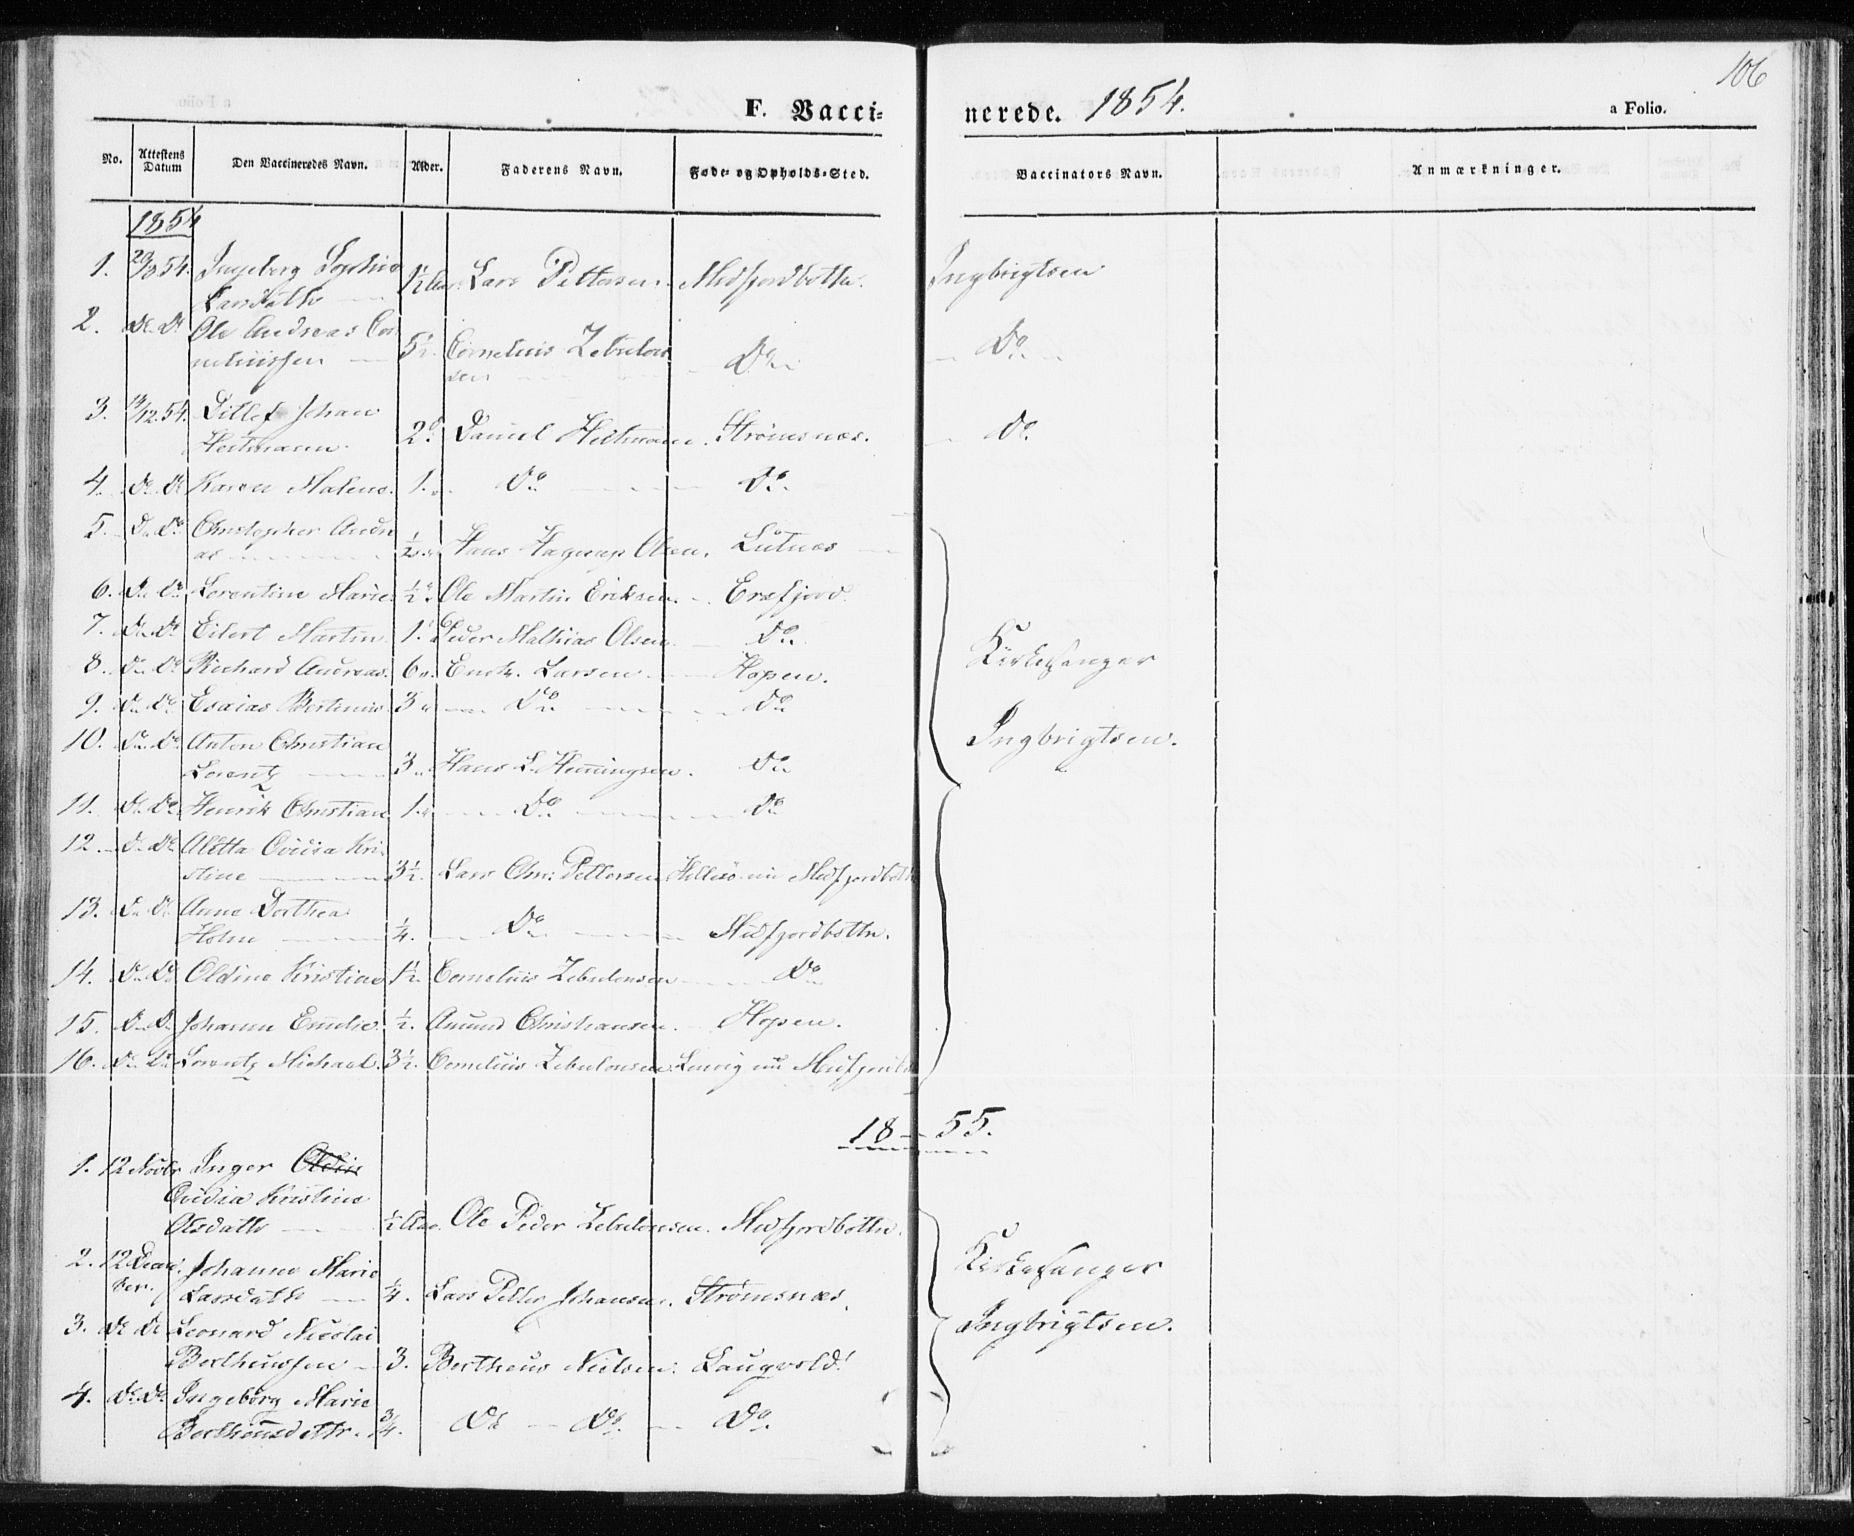 106
F. Vacci- nerede. 1854. a Folio.
No. Attestens Datum Den Vaccineredes Navn. Alder. Faderens Navn. Føde- og Opholds-Sted. Vaccinators Navn. Anmærkninger.
1854
1. 20/3 54. Ingeberg Sophie 1½ Aar. Lars Pettersen. Midfjordbottn. Ingbrigtsen
Larsdattr
2. Do. Do Ole Andreas Cor-
neliussen 5½. Cornelius Zebulon Do. Do.
sen
3. 14/12.54. Ditlef Johan
Heitmann 2. Daniel Heitmann. Strømsnæs. Do.
4. Do. Do Karen Malene. 1. Do. Do.
5. Do. Do. Christopher Andre
as ½. Hans Hagerup Olsen. Lutnæs
6. Do. Do. Lorentine Marie. ½. Ole Martin Eriksen. Ersfjord.
7. Do. Do. Eilert Martin 1. Peder Mathias Olsen Do. Kirkesanger
8. Do. Do. Richard Andreas. 6. Enok. Larsen Hopen.
9. Do. Do. Esaias Bertinus 3 Do. Do.
10. Do. Do. Anton Christian Ingbrigtsen.
Lorentz 3. Hans L. Henningsen. Do.
11. Do. Do. Henrik Christian 1. Do Do
12. Do. Do. Aletta Ovidia Kri-
stine 3½. Lars Chr: Pettersen Hillesø nu Midfjordbott
13. Do. Do. Anne Dorthea
Holm ¼. Do Midfjordbottn.
14. Do. Do. Oldine Kristine 1½. Cornelius Zebulonsen Do
15. Do. Do. Johanne Emilie. ½. Amund Christiansen. Hopen.
16. Do. Do. Lorentz Michael. 3½. Cornelius Zebulonsen. Lenvig nu Midfjordb
18 - 55.
1. 12 Novbr Inger Oldin
Ovidia Kristine
Olsdattr ½ Aar. Ole Peder Zebulonsen. Midfjordbottn.
2. 12 Decem- Johanne Marie Kirkesanger
ber. Larsdattr ¼. Lars Petter Johansen. Strømsnæs.
3. Do Do Leonard Nicolai Ingbrigtsen.
Bertheussen 3. Bertheus Nielsen. Laugvold.
4. Do. Do. Ingeborg Marie
Bertheusdattr. ¾. Do Do. Do.